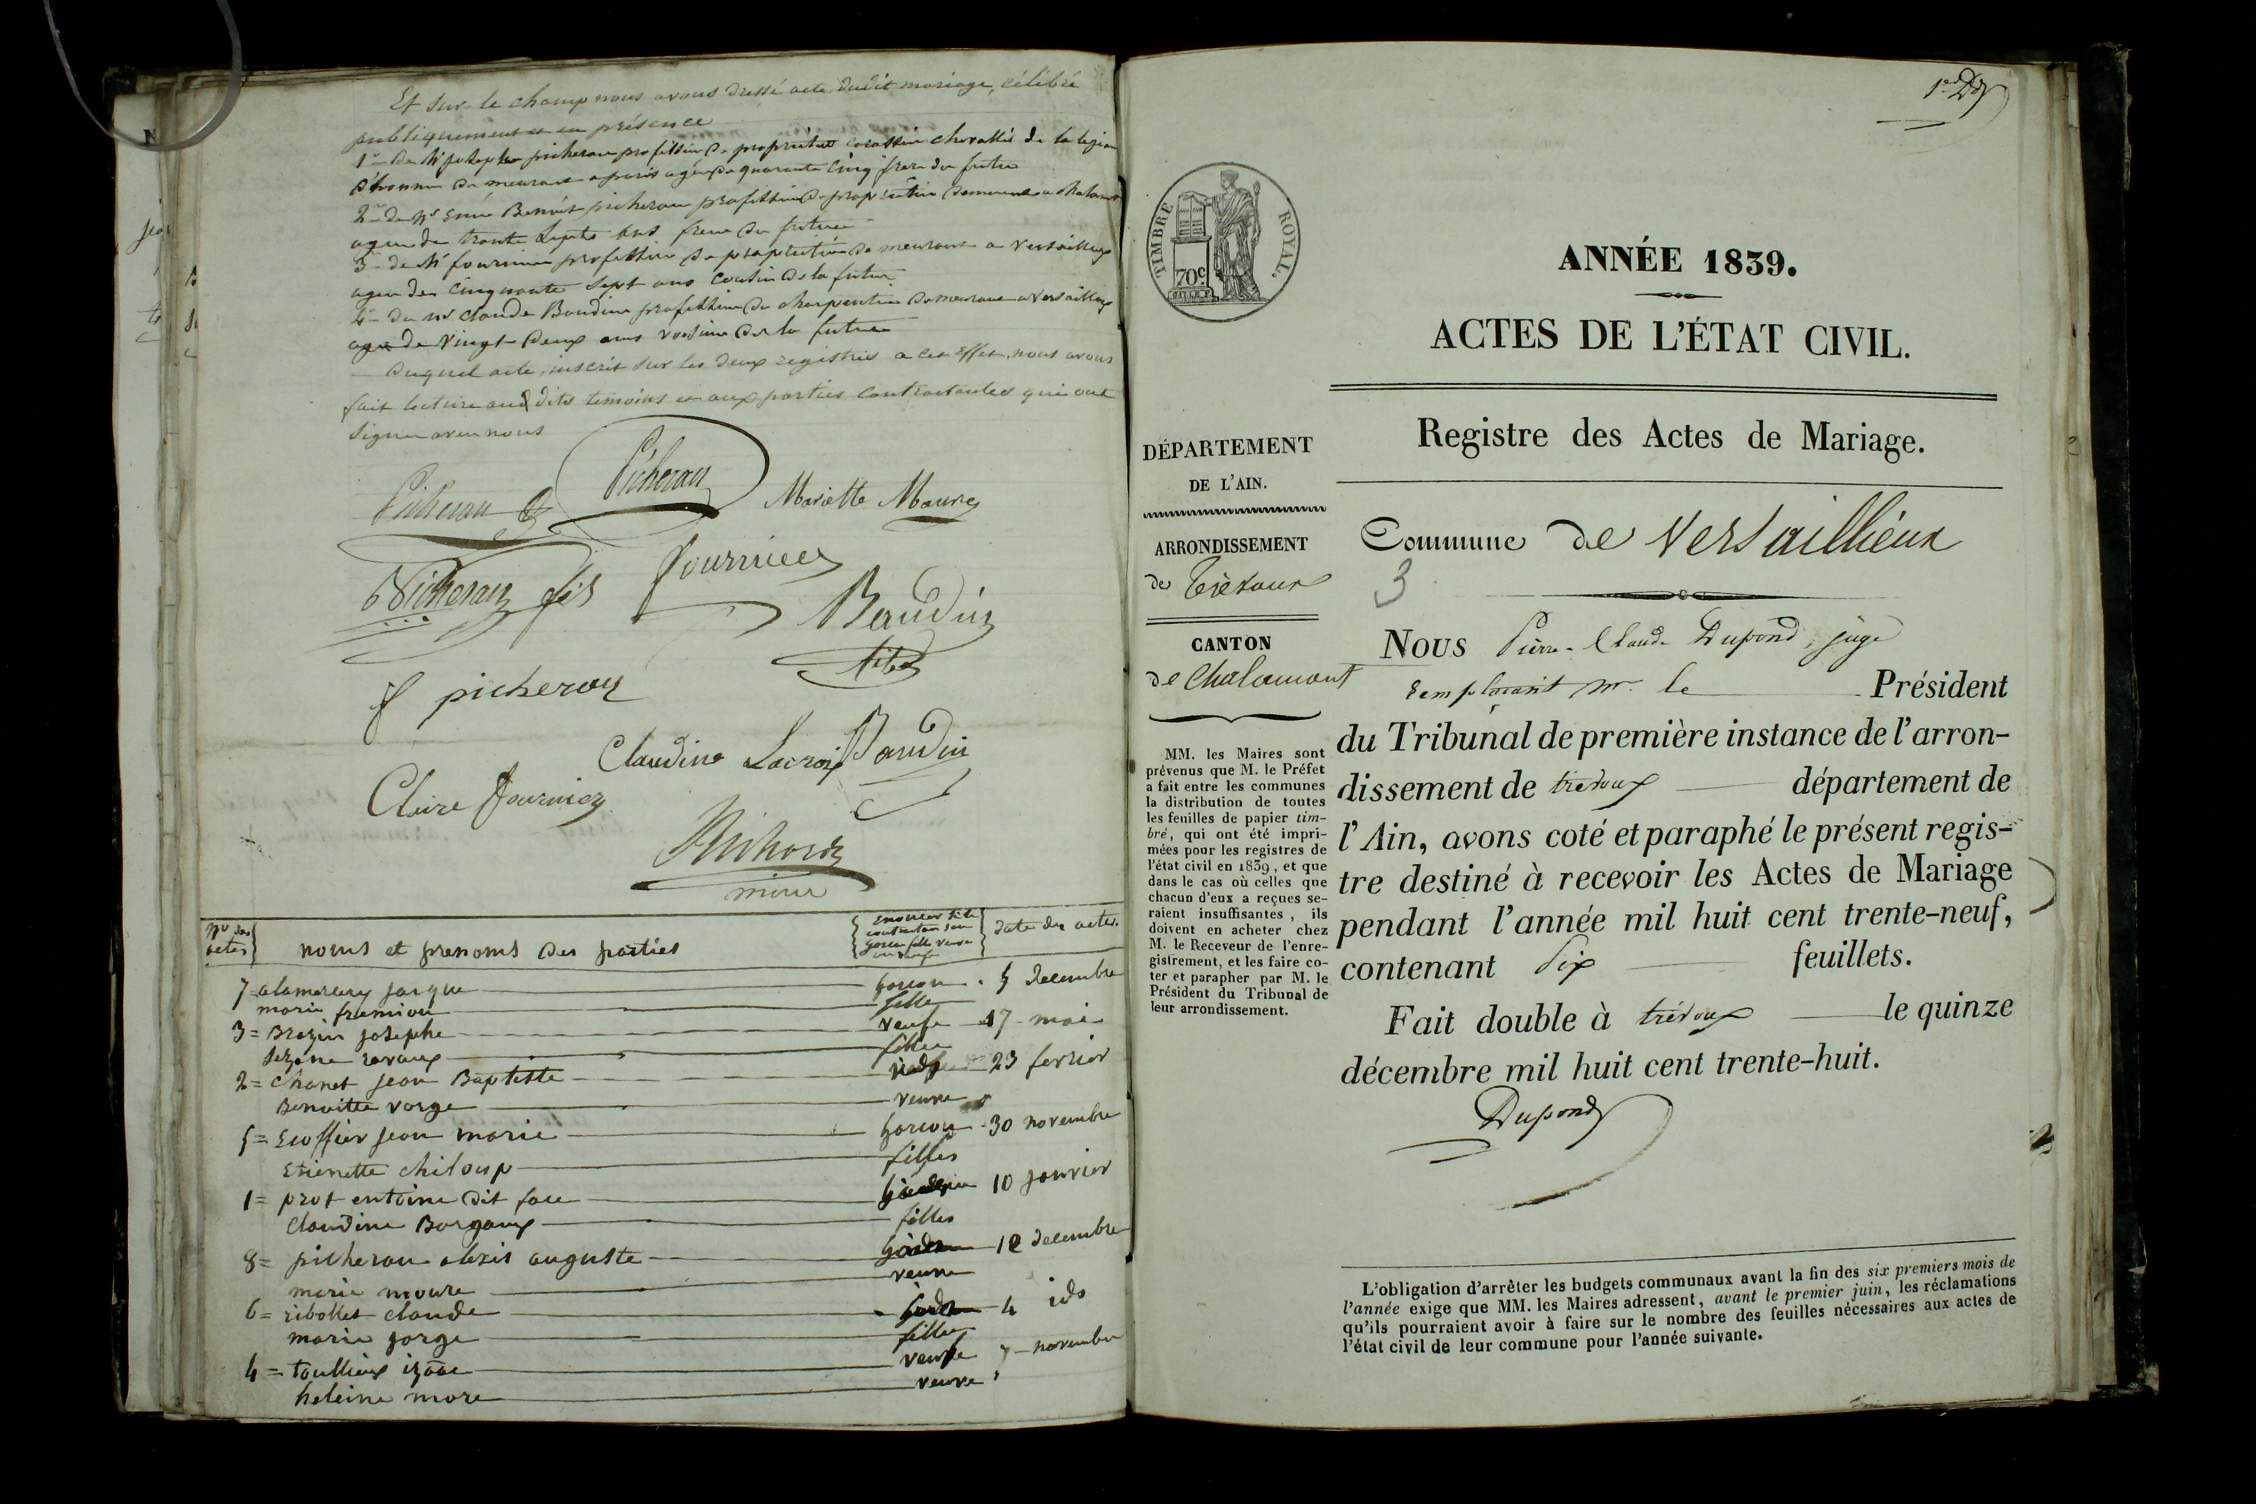 Et sur le champ nous avons dressé acte dudit mariage, célébré
publiquement et en présence
1° de Mr joseph picheran profession de propriétaire chevallié de la legion
d'honneur demeurant a paris agé de quarante cinq frere du futur
2° de Mr Benoit picheran profession de propriétaire demeurant a chalamont
agée de trante septe ans frere du future
3° de Mr fournier profession de propriétaire demeurant a Versaillieux
agée de cinquante sept ans cousin de la future
4° de Mr claude Baudin profession de charpentier demeurant a Versaillieux
agée de vingt deux ans voisin de la future
duquel acte, inscrit sur les deux registres a cet effet, nous avons
fait lecture aux dits témoins et aux parties contractantes qui ont
signer avec nous
Picheran
Picheran
Mariette Maure
Picheran fils
fournier
Baudin
J picheran
Claudine Lacroix
Baudin
Claire fournier
Richard
mère
No des actes
noms et prenoms des parties
date des actes.
7 = alamercery jacque garcon 5 decembre
marie framion fille
3 = Brazin josephe veufe 17 mai
ravaux fille
2 = chanet jean Baptiste 23 fevrier
Benoitte vorge veuve
5 = Escoffier jean marie garcon 30 novembre
Etienette chiloup filles
1 = prot entoine dit face 10 janvier
claudine Borgaux filles
8 = picheran alexis auguste 12 decembre
marie moure veuve
6 = ribollet claude 4 ids
marie jorge fille
4 = toullieux izaac veufe 7 novembre
heleine more veuve
1er Dd
TIMBRE ROYAL.
70c
ANNÉE 1839.
ACTES DE L'ÉTAT CIVIL.
Registre des Actes de Mariage.
DÉPARTEMENT
DE L'AIN.
ARRONDISSEMENT
de Trévoux
CANTON
de Chalamont
MM. les Maires sont
prévenus que M. le Préfet
a fait entre les communes
la distribution de toutes
les feuilles de papier tim-
bré, qui ont été impri-
mées pour les registres de
l'état civil en 1839, et que
dans le cas où celles que
chacun d'eux a reçues se-
raient insuffisantes, ils
doivent en acheter chez
M. le Receveur de l'enre-
gistrement, et les faire co-
ter et parapher par M. le
Président du Tribunal de
leur arrondissement.
Commune de Versaillieux
3
Nous Pierre-Claude Dupond, juge
remplaçant mr. le Président
du Tribunal de première instance de l'arron-
dissement de trévoux département de
l'Ain, avons coté et paraphé le présent regis-
tre destiné à recevoir les Actes de Mariage
pendant l'année mil huit cent trente-neuf,
contenant six feuillets.
Fait double à trévoux le quinze
décembre mil huit cent trente-huit.
Dupond
L'obligation d'arrêter les budgets communaux avant la fin des six premiers mois de
l'année exige que MM. les Maires adressent, avant le premier juin, les réclamations
qu'ils pourraient avoir à faire sur le nombre des feuilles nécessaires aux actes de
l'état civil de leur commune pour l'année suivante.